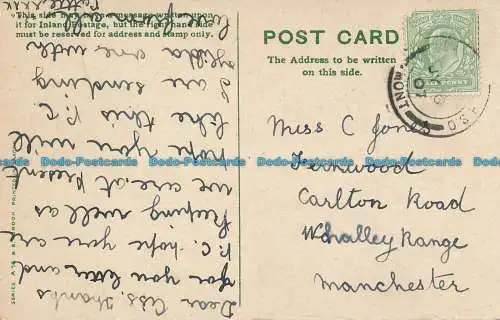 This side may
it for Inland Postage, but the right hand side
must be reserved for address and stamp only.
POST CARD
The Address to be written
on this side.
Miss C Jones
Fernwood
Carlton Road
Whalley Range
Manchester
Dear Ciss. thanks
for you letter and
P.C. hope you are
keeping well as
we are at present
hope you will
like this P.C.
I are sending
one with
Dodo-Postcards Dodo-Postcards Dodo-Postcards Dodo-Postcards Dodo-Postcards